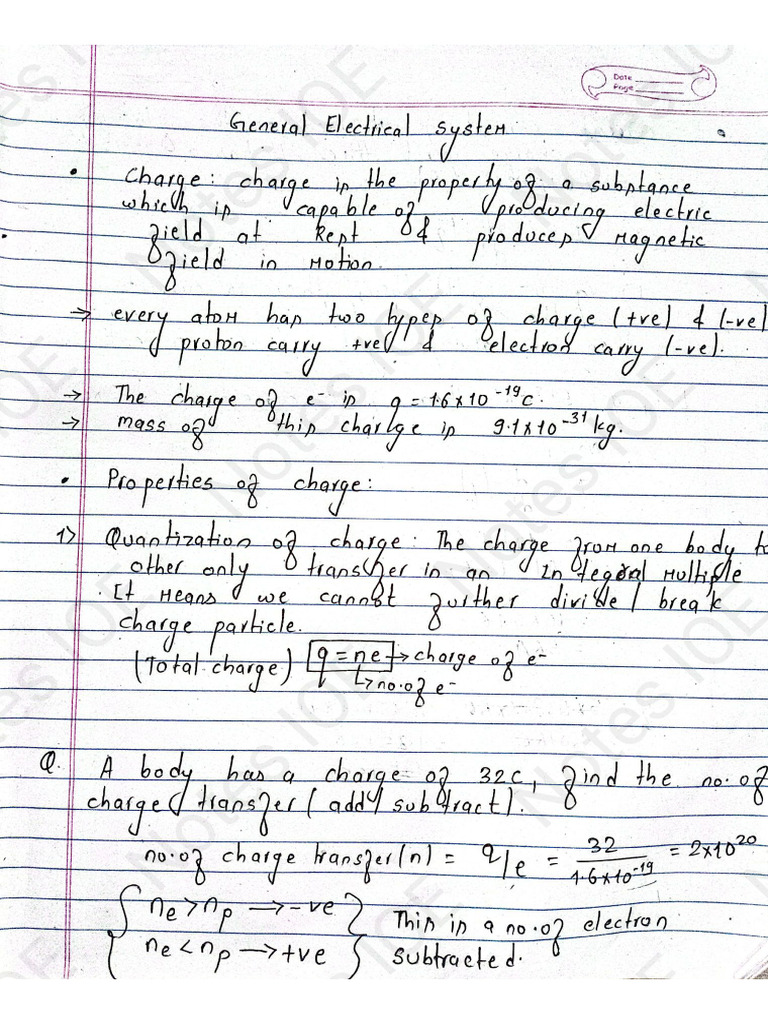 Date
Page
General Electrical system
• Charge: charge is the property of a substance
which is capable of producing electric
field at Rest & produces Magnetic
field in Motion.
→ every atom has two types of charge (+ve) & (-ve)
proton carry +ve & electron carry (-ve).
→ The charge of e⁻ is q = 1.6×10⁻¹⁹C.
→ mass of this charge is 9.1×10⁻³¹ kg.
• Properties of charge:
1) Quantization of charge: The charge from one body to
other only transfer in an Integral Multiple
. It Means we cannot further divide / break
charge particle.
(Total charge) q = ne → charge of e⁻
↓ ↳ no. of e⁻
Q. A body has a charge of 32C, find the no. of
charge transfer (add/subtract).
no. of charge transfer (n) = q/e = 32/1.6×10⁻¹⁹ = 2×10²⁰
{ ne > np → -ve } This is a no. of electron
{ ne < np → +ve } subtracted.
Notes IOE
Notes IOE
Notes IOE
Notes IOE
Notes IOE
Notes IOE